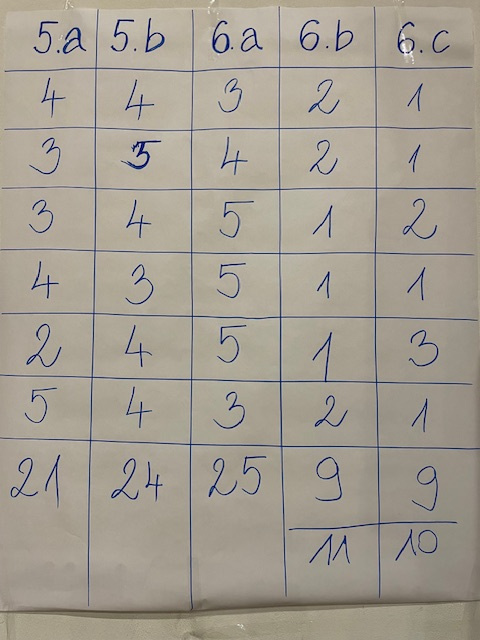 5.a 5.b 6.a 6.b 6.c
4 4 3 2 1
3 5 4 2 1
3 4 5 1 2
4 3 5 1 1
2 4 5 1 3
5 4 3 2 1
21 24 25 9 9
11 10